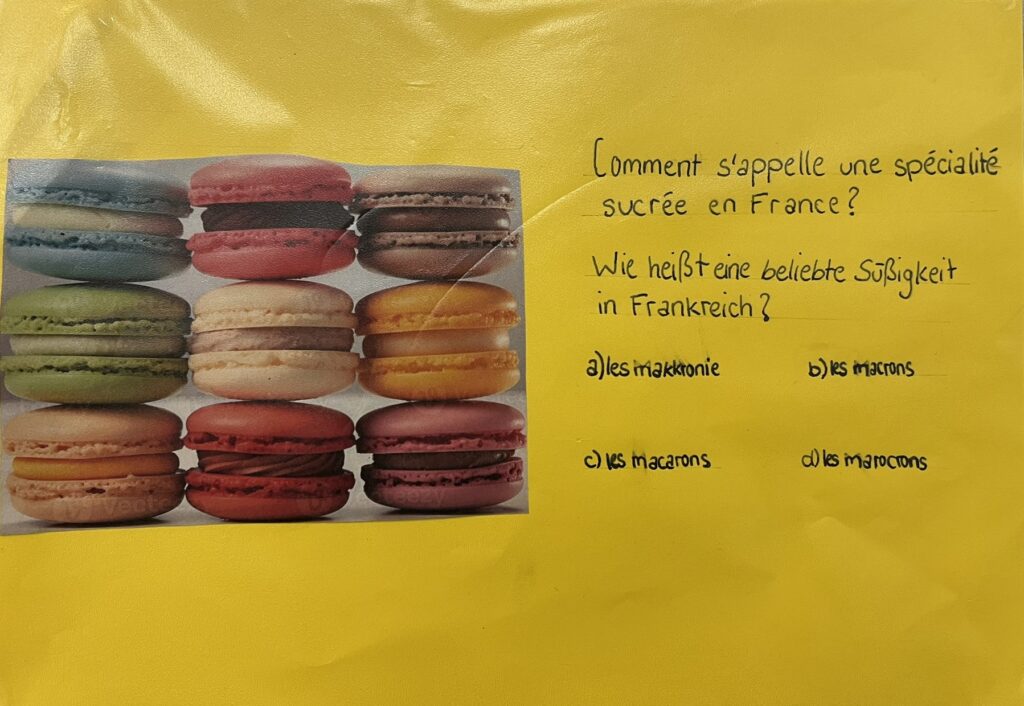 Comment s'appelle une spécialité
sucrée en France?
Wie heißt eine beliebte Süßigkeit
in Frankreich?
a) les makkronie
b) les macrons
c) les macarons
d) les marocrons